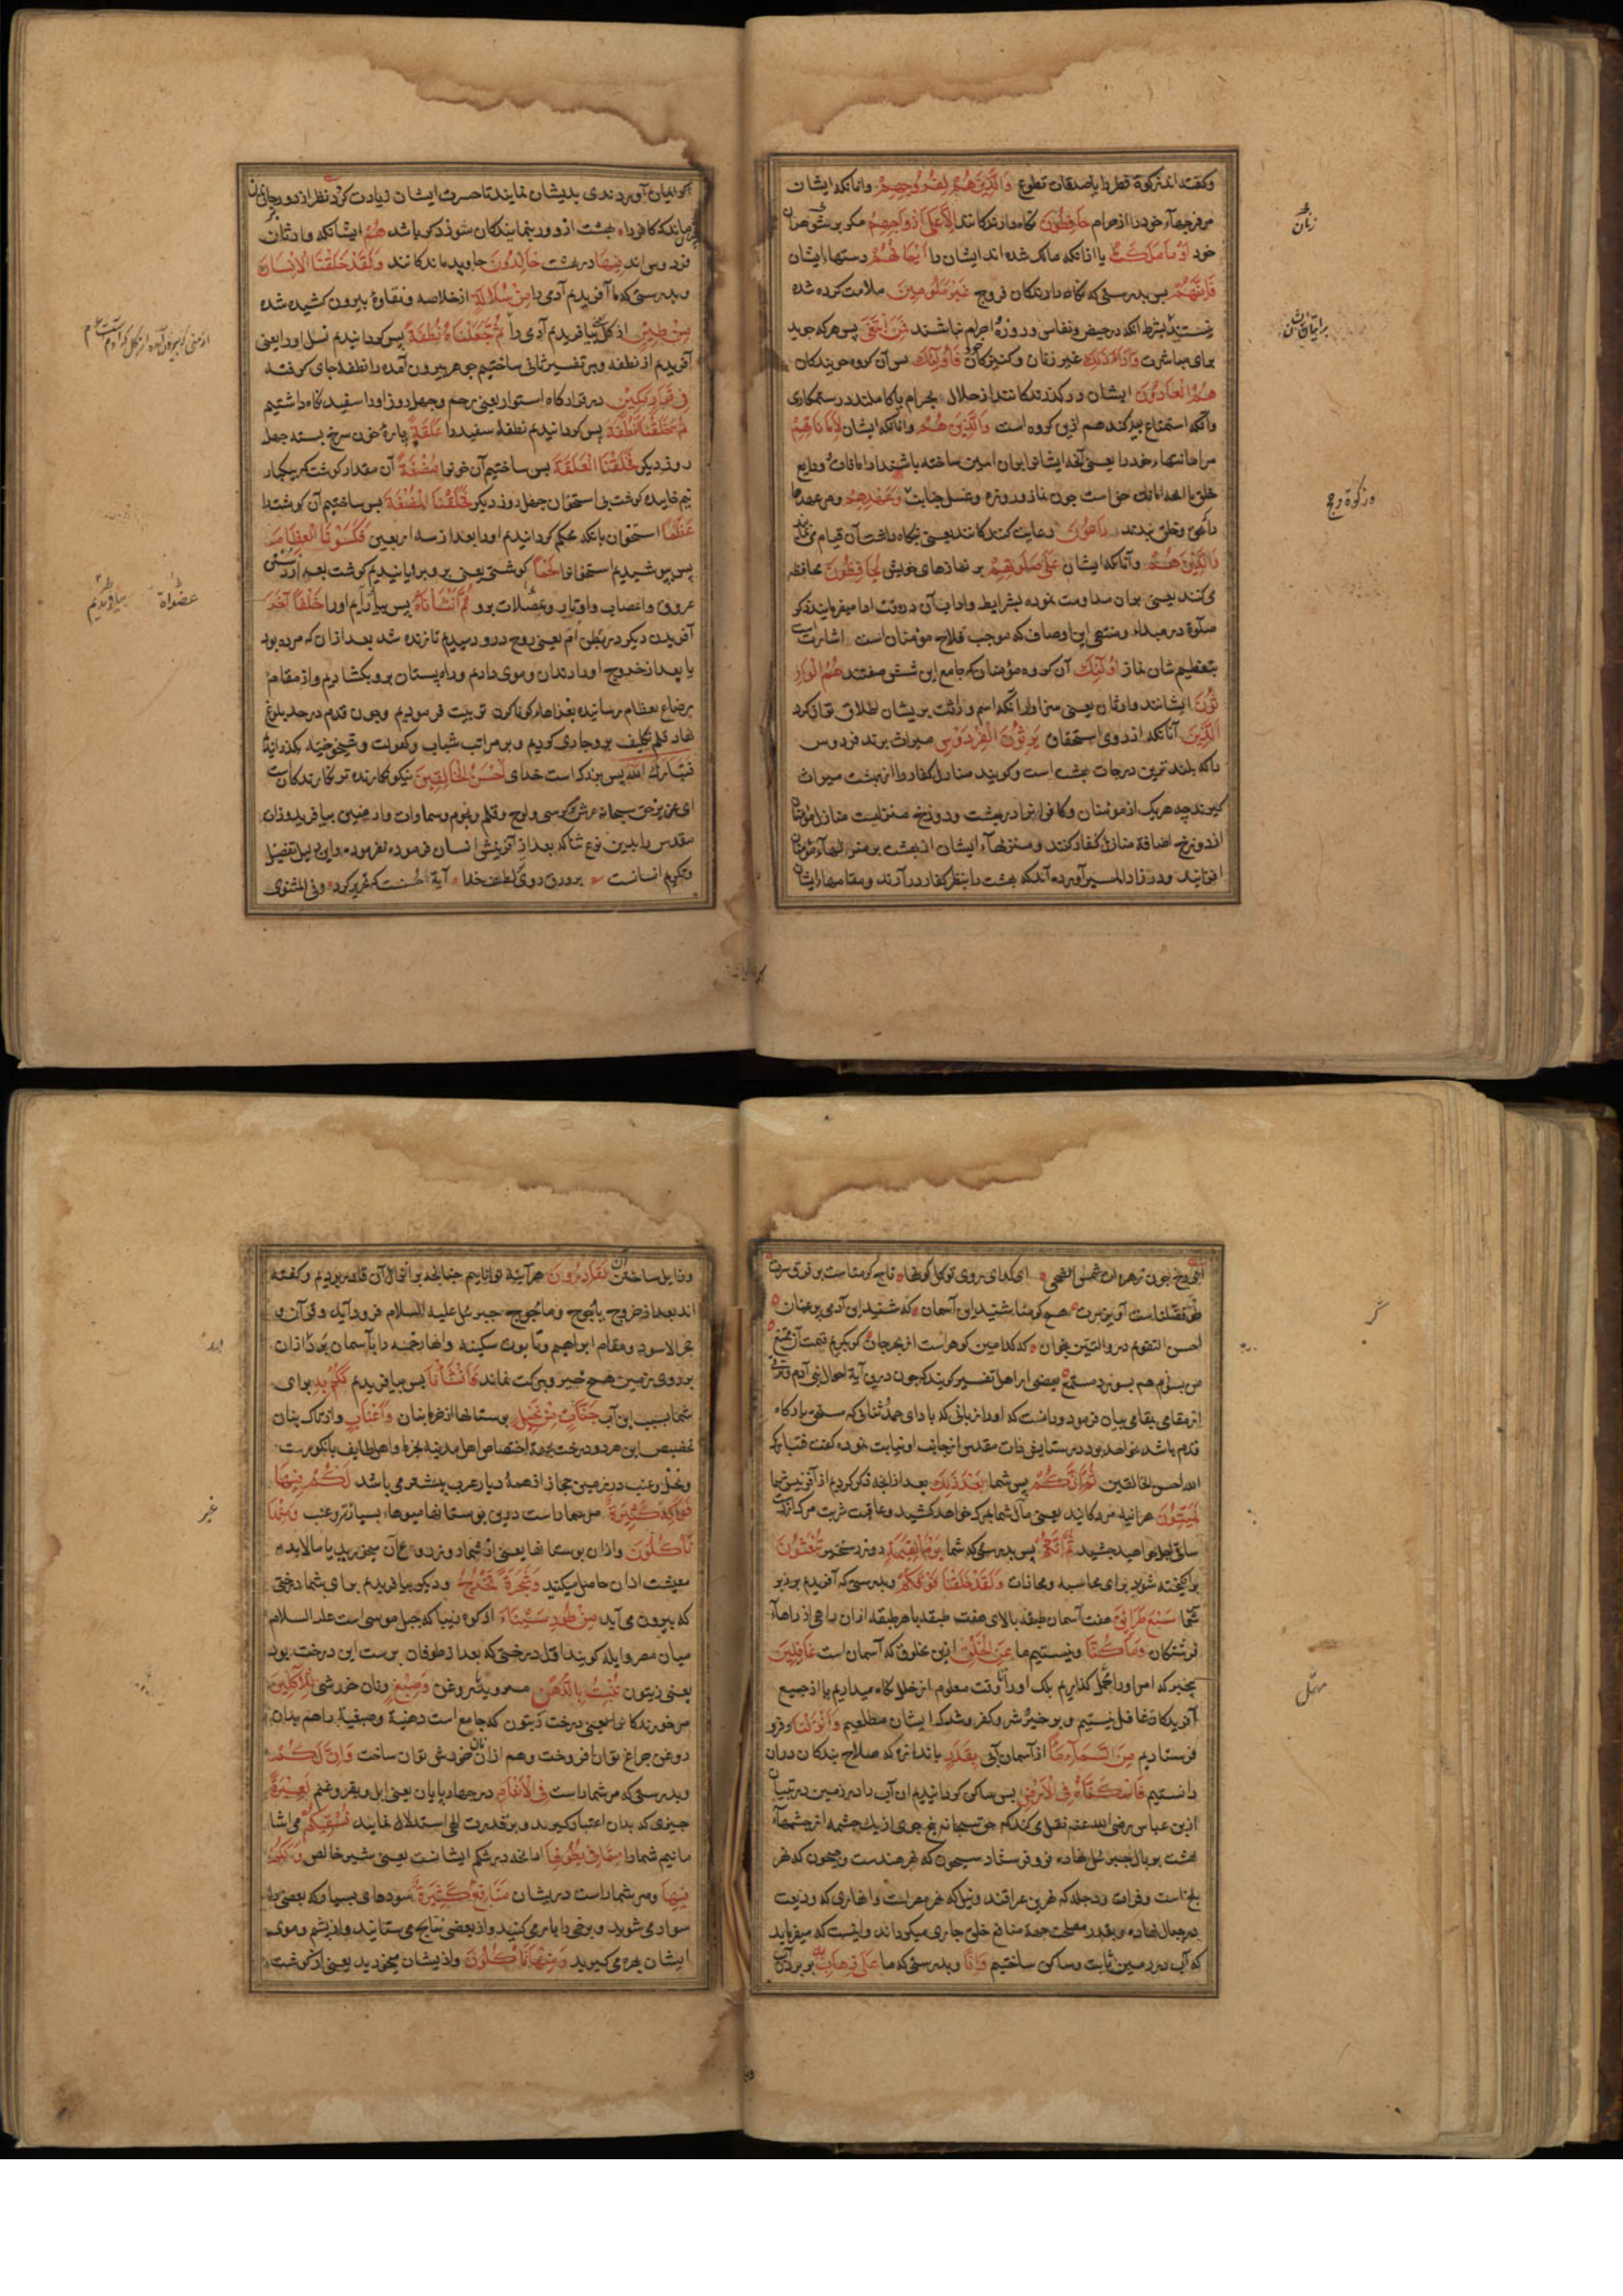 وکفته اند زکوة فطر را یا صدقات تطوع وَالَّذِینَ هُمْ لِفُرُوجِهِمْ وآنانکه ایشان
مر فرجهاء خود را از حرام حَافِظُونَ نکاه دارندکانند اِلَّا عَلَىٰ أَزْوَاجِهِمْ مکر بر
خود أَوْ مَا مَلَكَتْ یا آنانکه مالک شده اند ایشان را أَیْمَانُهُمْ دستهاء ایشان
فَإِنَّهُمْ بس بدرستی که نکاه دارندکان فروج غَیْرُ مَلُومِینَ ملامت کرده شده
نیستند بشرط آنکه در حیض ونفاس وروزه واحرام نباشند فَمَنِ ابْتَغَىٰ بس هرکه جوید
برای مباشرت وَرَاءَ ذَٰلِكَ غیر زنان وکنیزکان خود فَأُولَٰئِكَ بس آن کروه جویندکان
هُمُ الْعَادُونَ ایشان در کذرندکانند از حلال بحرام یا کاملند در ستمکاری
وآنکه استمناع بید کند هم ازین کروه است وَالَّذِینَ هُمْ وآنانکه ایشان لِأَمَانَاتِهِمْ
مر امانتهاء خود را یعنی آنچه ایشانرا بران امین ساخته باشند از امانات وودایع
خلق یا آنچه امانت حق است چون نماز وروزه وغسل جنابت وَعَهْدِهِمْ ومر عهد
باحق وخلق بندند رَاعُونَ رعایت کنندکانند یعنی نکاه داشت آن قیام می نمایند
وَالَّذِینَ هُمْ وآنانکه ایشان عَلَىٰ صَلَوَاتِهِمْ بر نمازهای خویش یُحَافِظُونَ محافظه
می کنند یعنی بران مداومت نموده بشرایط واداب آن در وقت ادا میفرمایند ذکر
صلوة در مبداء ومنتهی این اوصاف که موجب فلاح مؤمنان است اشارت است
بتعظیم شان نماز أُولَٰئِكَ آن کروه مؤمنان که جامع این شش صفتند هُمُ الْوَارِ
ثُونَ ایشانند وارثان یعنی سزاوار آنکه اسم وارث بریشان اطلاق توان کرد
الَّذِینَ آنانکه از روی استحقاق یَرِثُونَ الْفِرْدَوْسَ میراث برند فردوس
را که بلند ترین درجات بهشت است وکویند منازل کفار را از بهشت میراث
کیرند چه هریک از مؤمنان وکافرانرا در بهشت ودوزخ منزلیست منازل مؤمنان
از دوزخ اضافة منازل کفار کنند ومنزلهاء ایشان از بهشت بر منزلهاء مؤمنان
افزایند ودر زاد المسیر آورده آنکه بهشت را بنظر کفار در آرند ومقامهاء ایشان
زنان
وزکوة وحج
ایمان آوردندی بدیشان نمایند تا حسرت ایشان زیادت کردد نظر از دور
ماند که کافر را بهشت از دور بنمایند کان سوزد کویا شد هُمْ ایشانکه وارثان
فردوس اند فِیهَا در بهشت خَالِدُونَ جاوید ماندکانند وَلَقَدْ خَلَقْنَا الْإِنْسَانَ
وبدرستی که ما آفریدیم آدمی را مِنْ سُلَالَةٍ از خلاصه ونقاوه بیرون کشیده شده
مِنْ طِینٍ از کل بیافریدیم آدمی را ثُمَّ جَعَلْنَاهُ نُطْفَةً پس کردانیدیم نسل اورا یعنی
آفریدیم از نطفه وبر تفسیر ثانی ساختیم جوهر بیرون آمده را نطفه جای کرفته
فِی قَرَارٍ مَكِینٍ در قرارکاه استوار یعنی رحم وچهل روز اورا سفید نکاه داشتیم
ثُمَّ خَلَقْنَا النُّطْفَةَ پس کردانیدیم نطفهٔ سفید را عَلَقَةً پارهٔ خون سرخ بسته چهل
روز دیکر فَخَلَقْنَا الْعَلَقَةَ بس ساختیم آن خونرا مُضْغَةً آن مقدار کوشت که بیکبار
نیم خاییده کوشت بی استخوان چهل روز دیکر فَخَلَقْنَا الْمُضْغَةَ بس ساختیم آن کوشترا
عِظَامًا استخوان بانکه محکم کردانیدیم اورا بعد از سه اربعین فَكَسَوْنَا الْعِظَامَ
پس پوشیدیم استخوانرا لَحْمًا کوشتی یعنی برو برویانیدیم کوشت بعد از
عروق واعصاب واوتار وعضلات برو ثُمَّ أَنْشَأْنَاهُ پس بیافریدیم اورا خَلْقًا آخَرَ
آفریدن دیکر در بطن ام یعنی روح درو دمیدیم تا زنده شد بعد ازان که مرده بود
یا بعد از خروج اورا دندان وموی دادیم وراه پستان برو بکشادیم واز مقام
رضاع بطعام رسانیده بغذاهاء کوناکون تربیت فرمودیم وچون قدم در حد بلوغ
نهاد قلم تکلیف برو جاری کردیم وبر مراتب شباب وکهولت وشیخوخیة بکذرانیدیم
فَتَبَارَكَ اللَّهُ پس بزرک است خدای أَحْسَنُ الْخَالِقِینَ نیکو نکارنده تر نکارندکانست
ای عزیز حق سبحانه عرش وکرسی ولوح وقلم ونجوم وسماوات وارضین بیافرید وذات
مقدس را بدین نوع ثنا که بعد از آفرینش انسان فرموده نفرموده واین دلیل تفضیل
وتکریم انسانست بر ورق روی لطف خدا آیة حسنست که تحریر کرد وفی المثنوی
بیافریدیم
ای رخ چون زهره ات شمس الضحی ای کدای روی تو کلکونها تاج کرمناست بر فرق سرت
طوق فضلناست آویز برت هیچ کرمنا شنید این آسمان که شنید این آدمی پر غمان
احسن التقویم در والتین بخوان که کدامین کوهر است از بحر جان کر بکویم قیمت آن ممتنع
من بسوزم هم بسوزد مستمع بعضی از اهل تفسیر کویند که چون درین آیة احوال بنی آدم
از مقامی بمقامی بیان فرمود ودانست که اورا زبانی که بادای حمد وثنائی که سزاوار بارکاه
قدم باشد نخواهد بود در ستایش ذات مقدس از جانب او نیابت نموده کفت فتبارک
الله احسن الخالقین ثُمَّ إِنَّكُمْ پس شما بَعْدَ ذَٰلِكَ بعد از آنچه ذکر کردیم از آفرینش شما
لَمَیِّتُونَ هر آینه مردکانید یعنی مآل شما بمرک خواهد کشید وعاقبت شربت مرک از دست
ساقی اجل خواهید چشید ثُمَّ إِنَّكُمْ پس بدرستی که شما یَوْمَ الْقِیَامَةِ در روز رستخیز تُبْعَثُونَ
برانکیخته شوید برای محاسبه ومجازات وَلَقَدْ خَلَقْنَا فَوْقَكُمْ وبدرستی که آفریدیم بر زبر
شما سَبْعَ طَرَائِقَ هفت آسمان طبقه بالای هفت طبقه یا هر طبقه ازان راهی از راهاء
فرشتکان وَمَا كُنَّا ونیستیم ما عَنِ الْخَلْقِ ازین مخلوق که آسمان است غَافِلِینَ
بیخبر که امر اورا مهمل کذاریم بلک اورا تا وقت معلوم از خلل نکاه میداریم یا از جمیع
آفریدکان غافل نیستیم وبر خیر وشر وکفر وشکر ایشان مطلعیم وَأَنْزَلْنَا وفرو
فرستادیم مِنَ السَّمَاءِ مَاءً از آسمان آبی بِقَدَرٍ باندازه که صلاح بندکان دران
دانستیم فَأَسْكَنَّاهُ فِی الْأَرْضِ پس ساکن کردانیدیم ان آب را در زمین
ازین عباس رضی الله عنه نقل می کند که حق سبحانه پنج جوی از یک چشمه از چشمهاء
بهشت بر بال جبرئیل نهاده فرو فرستاد سیحون که نهر هندست وجیحون که نهر
بلخ است وفرات ودجله که نهرین عراقند ونیل که نهر مصر است وانهاری که ودیعت
در جبال نهاده وبقدر مصلحت جهة منافع خلق جاری میکرداند واینست که میفرماید
که آب در زمین ثابت وساکن ساختیم وَإِنَّا وبدرستی که ما عَلَىٰ ذَهَابٍ بِهِ بر بردن
مهمل
وزایل ساختن آن لَقَادِرُونَ هر آینه تواناییم چنانچه بر انزال آن قادر بودیم وکفته
اند بعد از خروج یاجوج وماجوج جبرئیل علیه السلام فرود آید وقرآن و
حجر الاسود ومقام ابراهیم وتابوت سکینه وانهار خمسه را بآسمان برد وازان
بر روی زمین هیچ خیر وبرکت نماند فَأَنْشَأْنَا پس بیافریدیم لَكُمْ بِهِ برای
شما بسبب این آب جَنَّاتٍ مِنْ نَخِیلٍ بوستانها از خرما بنان وَأَعْنَابٍ واز تاک بنان
تخصیص این هر دو درخت بجهة اختصاص اهل مدینه بخرما واهل طایف بانکورست
ونخل وعنب در زمین حجاز از همهٔ دیار عرب بیشتر می باشد لَكُمْ فِیهَا
فَوَاكِهُ كَثِیرَةٌ مر شما راست درین بوستانها میوها بسیار تر وعنب وَمِنْهَا
تَأْكُلُونَ وازان بوستانها یعنی از ثمار وزروع آن میخورید یا مالابد
معیشت ازان حاصل میکنید وَشَجَرَةً تَخْرُجُ ودیکر بیافریدیم برای شما درختی
که بیرون می آید مِنْ طُورِ سَیْنَاءَ از کوه زیبا که جبل موسی است علیه السلام
میان مصر وایله کویند اول درختی که بعد از طوفان برست این درخت بود
یعنی زیتون تَنْبُتُ بِالدُّهْنِ میروید بروغن وَصِبْغٍ ونان خورشی لِلْآكِلِینَ
مر خورندکانرا یعنی درخت زیتون که جامع است دهنیة وصبغیة را هم بدان
روغن چراغ توان افروخت وهم ازان نان خورشی توان ساخت وَإِنَّ لَكُمْ
وبدرستی که مر شما راست فِی الْأَنْعَامِ در چهار پایان یعنی ابل وبقر وغنم لَعِبْرَةً
چیزی که بدان اعتبار کیرید وبر قدرت الهی استدلال نمایند نُسْقِیكُمْ می اشا
مانیم شمارا مِمَّا فِی بُطُونِهَا ازانچه در شکم ایشانست یعنی شیر خالص وَلَكُمْ
فِیهَا ومر شما راست دریشان مَنَافِعُ كَثِیرَةٌ سودهای بسیار که بعضی را
سوار می شوید وبرخی را بار می کنید واز بعضی نتایج می ستانید واز پشم وموی
ایشان بهره می کیرید وَمِنْهَا تَأْكُلُونَ وازیشان میخورید یعنی از کوشت